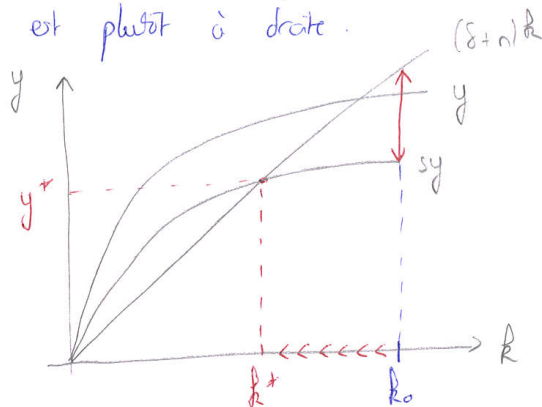 est plutôt à droite.
(δ+n)k
y
y
sy
y*
k
k*
k₀